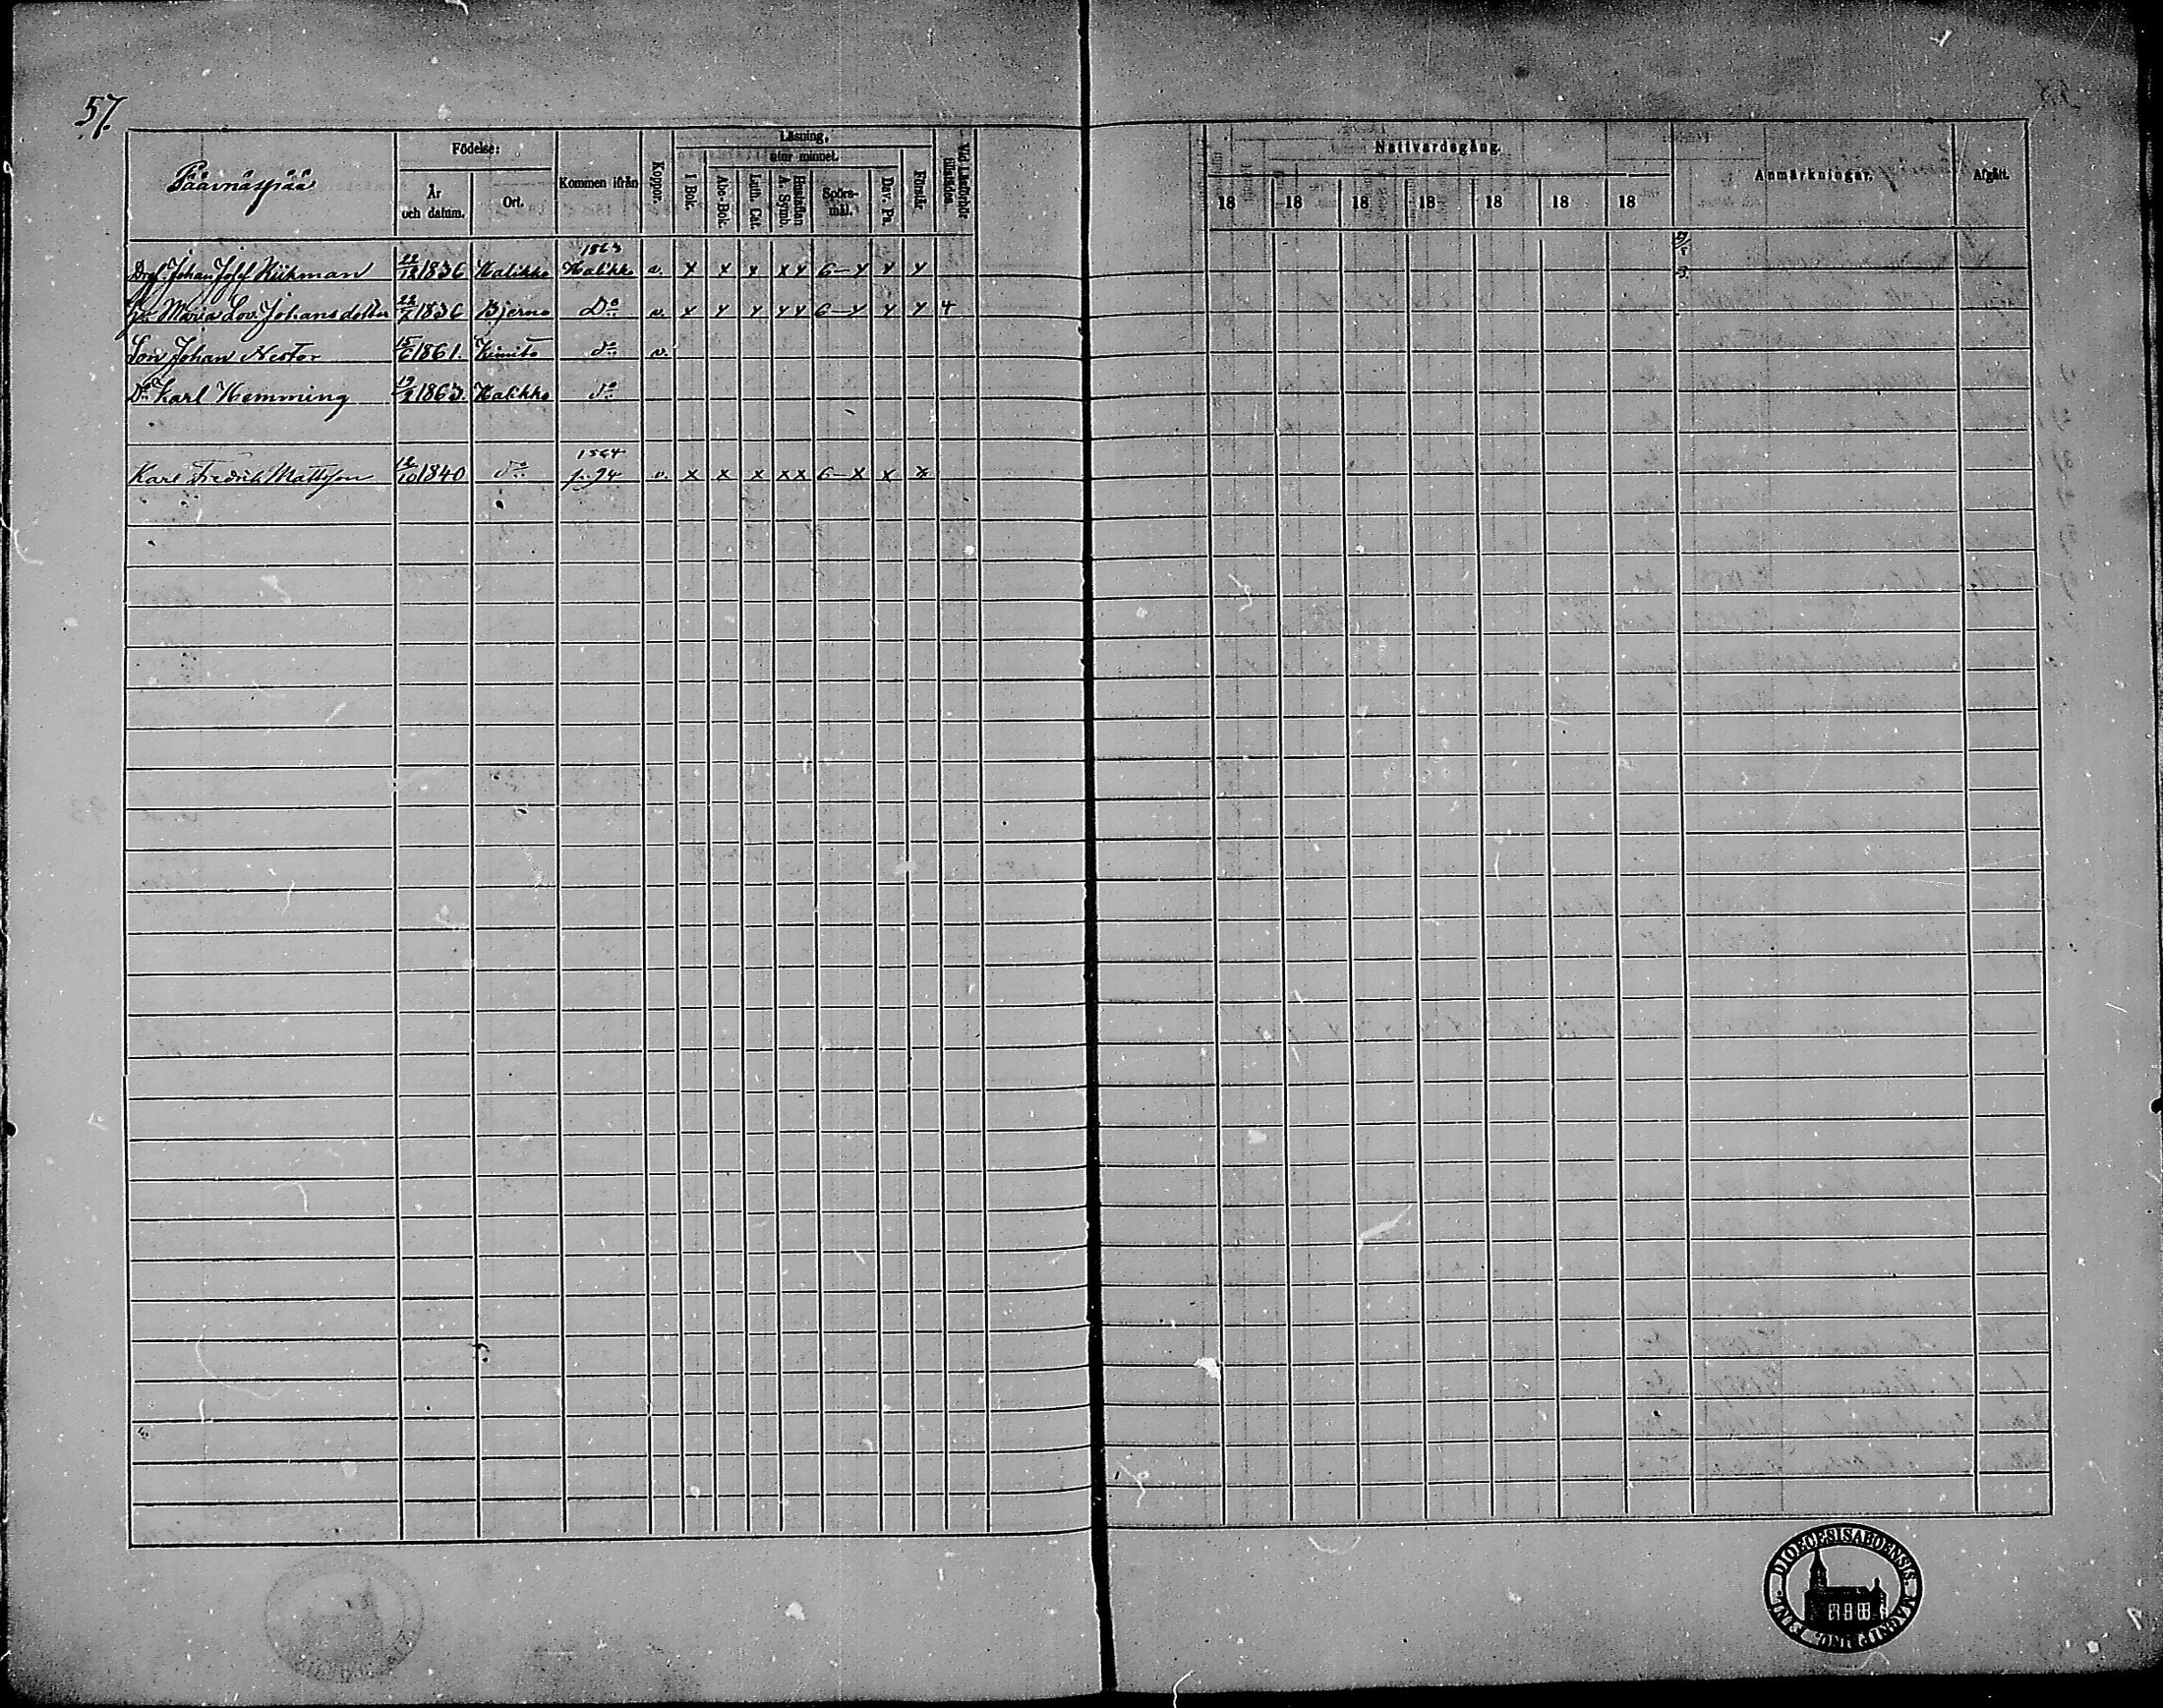 57.
Födelse:
Läsning,
utur minnet.
År och datum.
Ort.
Kommen ifrån
Koppor.
I Bok.
Abc-Bok.
Luth. Cat.
Hustaflan A. Symb.
Spörs-mål.
Dav. Ps.
Förstår.
Nattvardsgång.
18 18 18 18 18 18 18
Anmärkningar.
Afgått.
1863
Johan Josef 22/12 1836 Halikko Halikko v. x x x x x 6 - x x x
Maria Lov. Johansdotter 22/7 1836 Bjerno Do v. x x x x x 6 - x x x 4
Son Johan Nestor 15/6 1861. Kimito do v.
Do Karl Hemming 19/2 1863. Halikko do
1864
Karl Fredrik Mattsson 12/10 1840 do p. 94 v. x x x x x 6 - x x x
DIOECESIS ABOENSIS